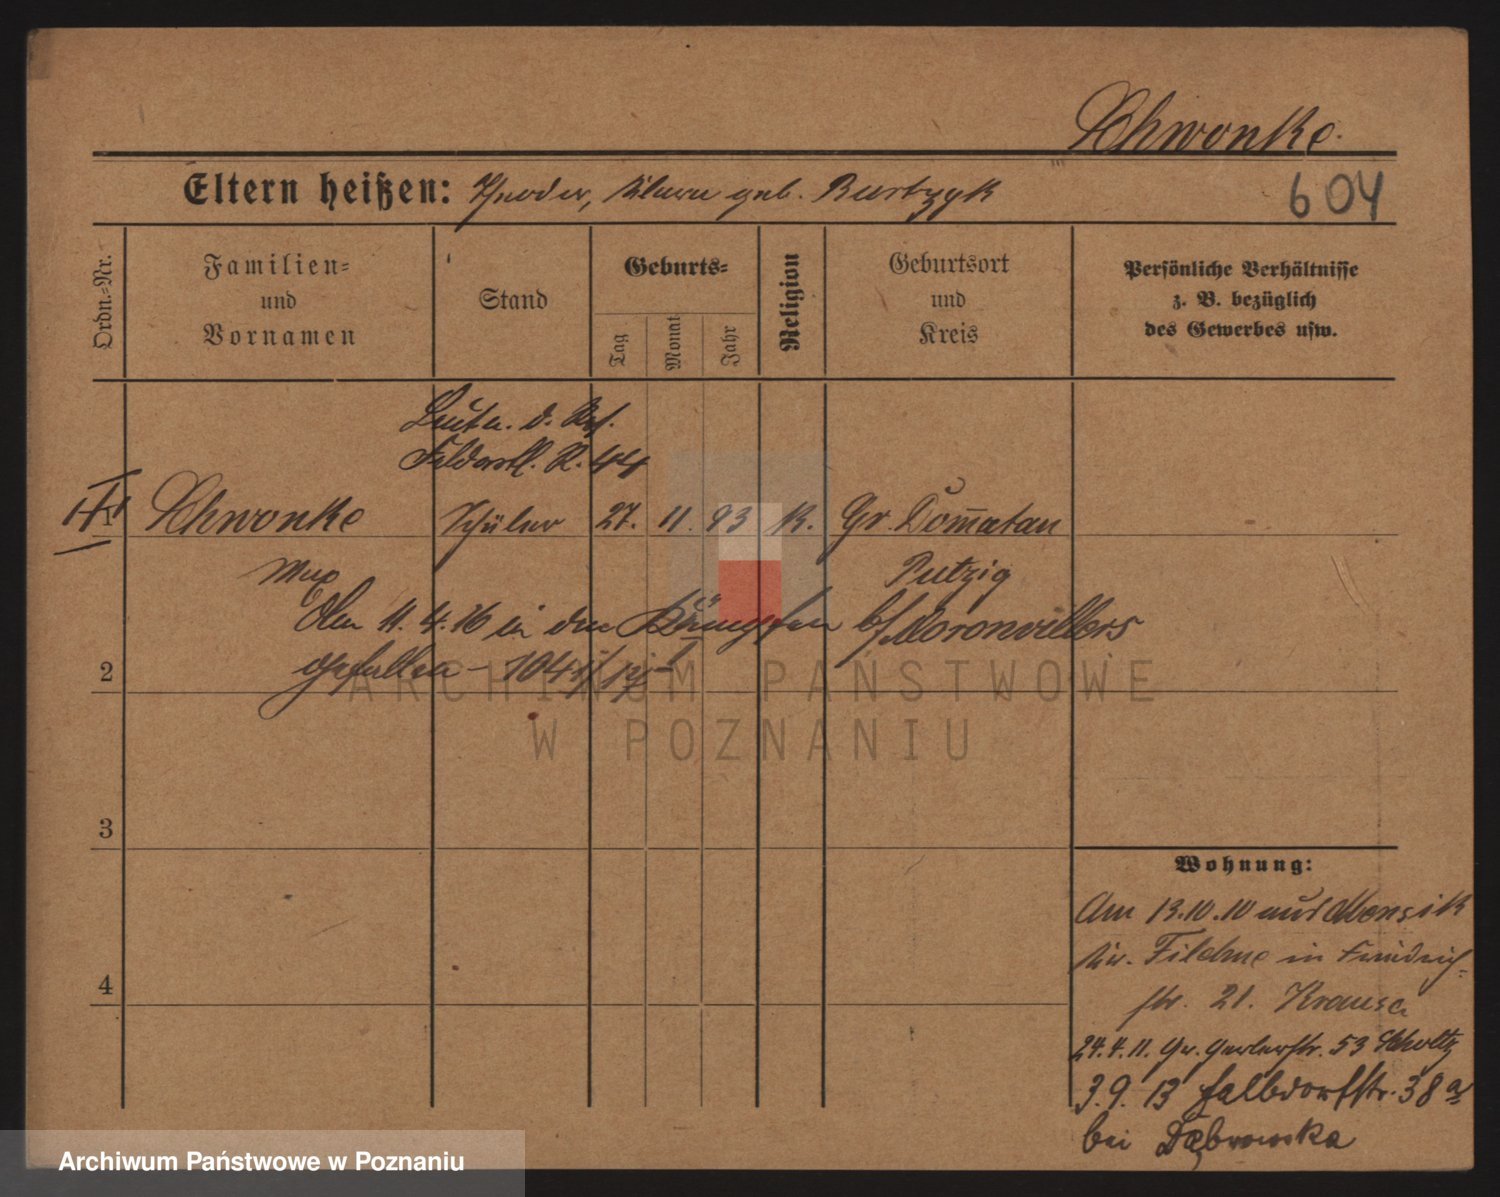 Schwonke.
Eltern heißen: Theodor, Klara geb. Burtzyk
604
Ordn.-Nr.
Familien-
und
Vornamen
Stand
Geburts-
Tag
Monat
Jahr
Religion
Geburtsort
und
Kreis
Persönliche Verhältnisse
z. B. bezüglich
des Gewerbes usw.
Leutn. d. Res.
Feldartl. R. 44
1 Schwonke Schüler 27. 11. 93 K. Gr. Dom̅atau
Max Putzig
Am 11. 4. 16 in den Kämpfen b/ Moronvillers
gefallen - 104
2
3
4
ARCHIWUM PAŃSTWOWE
W POZNANIU
Wohnung:
Am 13.10.10 aus Mensik
Kr. Filehne in Friedrich-
str. 21. Krause
24.4.11. Gr. Gerberstr. 53 Scholtz
3.9.13 Halbdorfstr. 38a
bei Dąbrowska
Archiwum Państwowe w Poznaniu